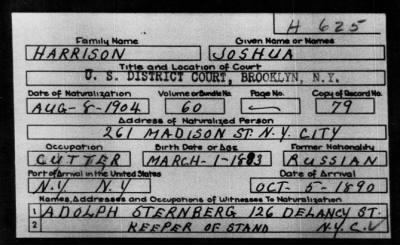 H 625
Family Name Given Name or Names
HARRISON JOSHUA
Title and Location of Court
U. S. DISTRICT COURT, BROOKLYN, N.Y.
Date of Naturalization Volume or Bundle No. Page No. Copy of Record No.
AUG-8-1904 60 79
Address of Naturalized Person
261 MADISON ST. N.Y. CITY
Occupation Birth Date or Age Former Nationality
CUTTER MARCH-1-1883 RUSSIAN
Port of Arrival in the United States Date of Arrival
N.Y. N.Y OCT-5-1890
Names, Addresses and Occupations of Witnesses To Naturalization
1 ADOLPH STERNBERG 126 DELANCY ST.
2 KEEPER OF STAND N.Y.C.